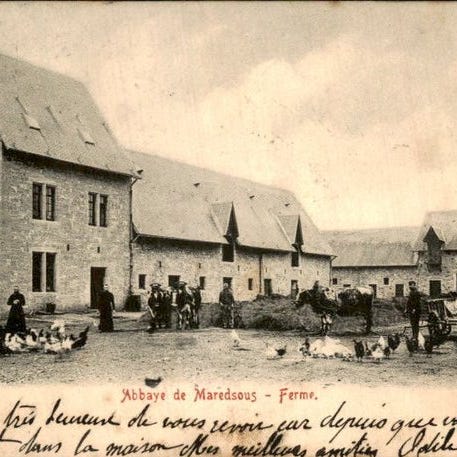 Abbaye de Maredsous - Ferme.
très heureuse de vous revoir car depuis que
dans la maison Mes meilleures amitiés Odile